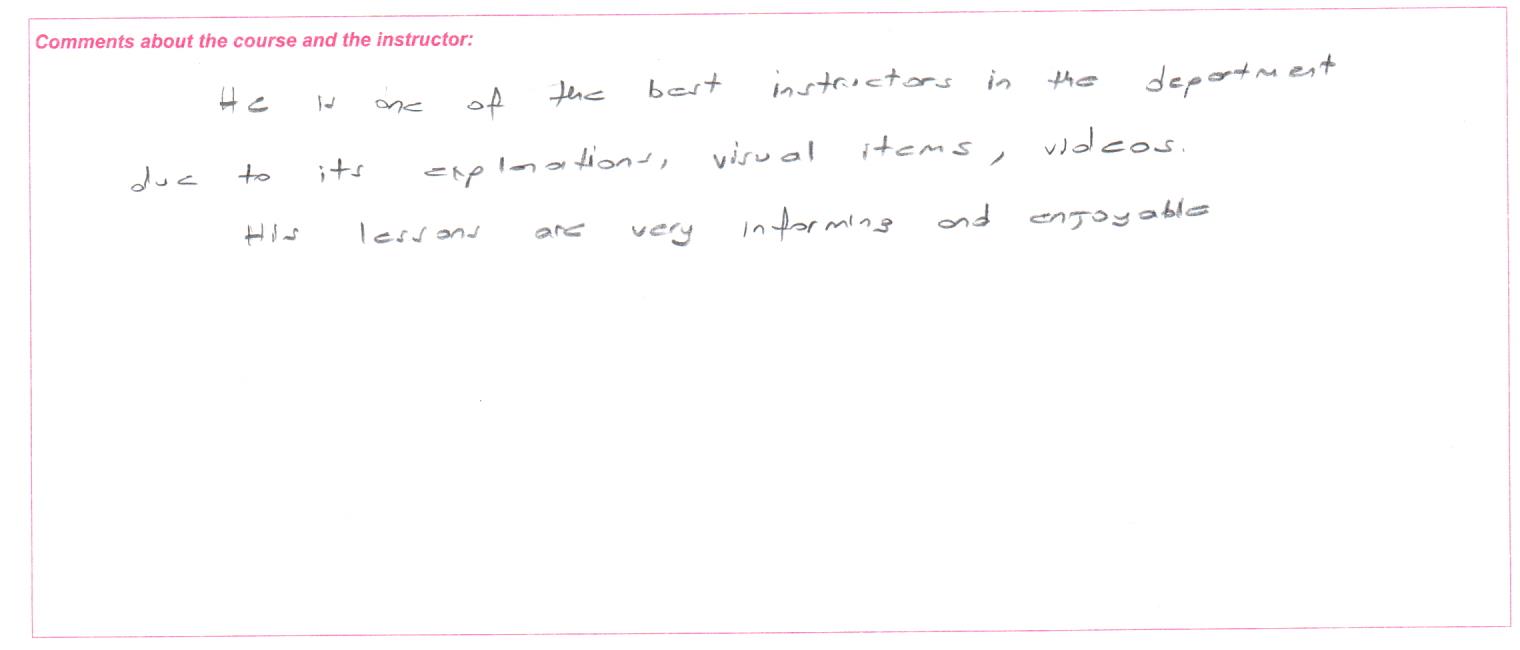 Comments about the course and the instructor:
He is one of the best instructors in the department
due to its explanations, visual items, videos.
His lessons are very informing and enjoyable